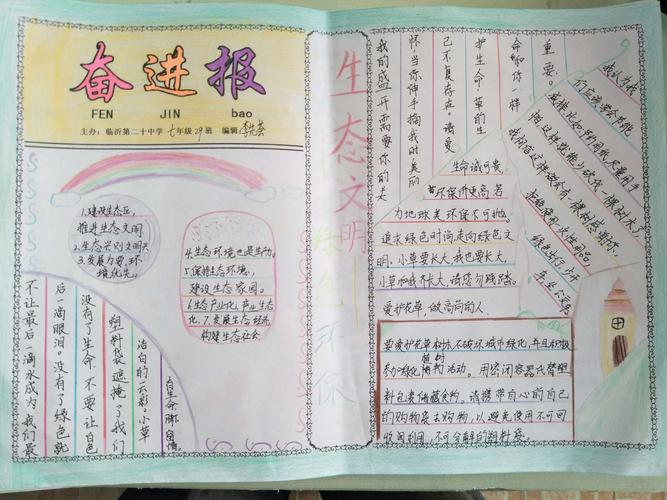 奋进报
FEN JIN bao
主办：临沂第二十中学 七年级29班 编辑
1.建设生态区，
推进生态文明
2.生态兴则文明兴
3.发展为要,环
境优先。
4.生态环境也是生产力。
5.保护生态环境，
建设生态家园。
6.生态产业化，产业生态
化.7.发展生态经济
构建生态社会
有生命那留情。
洁白的云彩。小草
塑料袋遮掩了我们
没有了生命，不要让白色
后一滴眼泪。没有了绿色就
不让最后一滴水成为我们最
生态文明
绿色环保
重要。
命和你一样
护生命，草的生
己不复存在。请爱
怀，当你伸手摘我时，美丽
我的盛开需要你的关
生命诚可贵，
环保价更高，若
为地球美环保不可抛，
追求绿色时尚走向绿色文
明。小草要长大，我也要长大，
小草和我齐长大，请您勿践踏。
爱护花草，做高尚的人。
要爱护花草树木，不破坏城市绿化，并且积极
参加绿化植树活动。用密闭容器代替塑
料包装储藏食物。请携带自心前自己
的购物袋去购物，以避免使用不可回
收再利用，不可分解的塑料袋。
我认为我
们应该学会节能